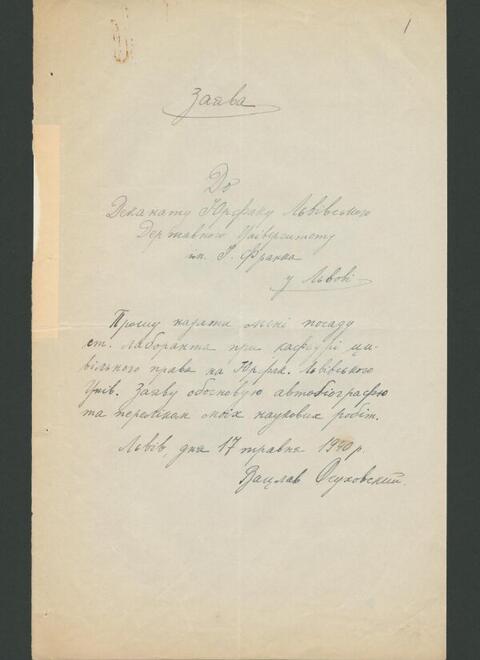 1
Заява
До
Деканату Юрфаку Львівського
Державного Університету
ім. І. Франка
у Львові
Прошу надати мені посаду
ст. лаборанта при кафедрі ци-
вільного права на Юрфак. Львівського
Унів. Заяву обосновую автобіографією
та переліком моїх наукових робіт.
Львів, дня 17 травня 1940 р.
Вацлав Осуховский.